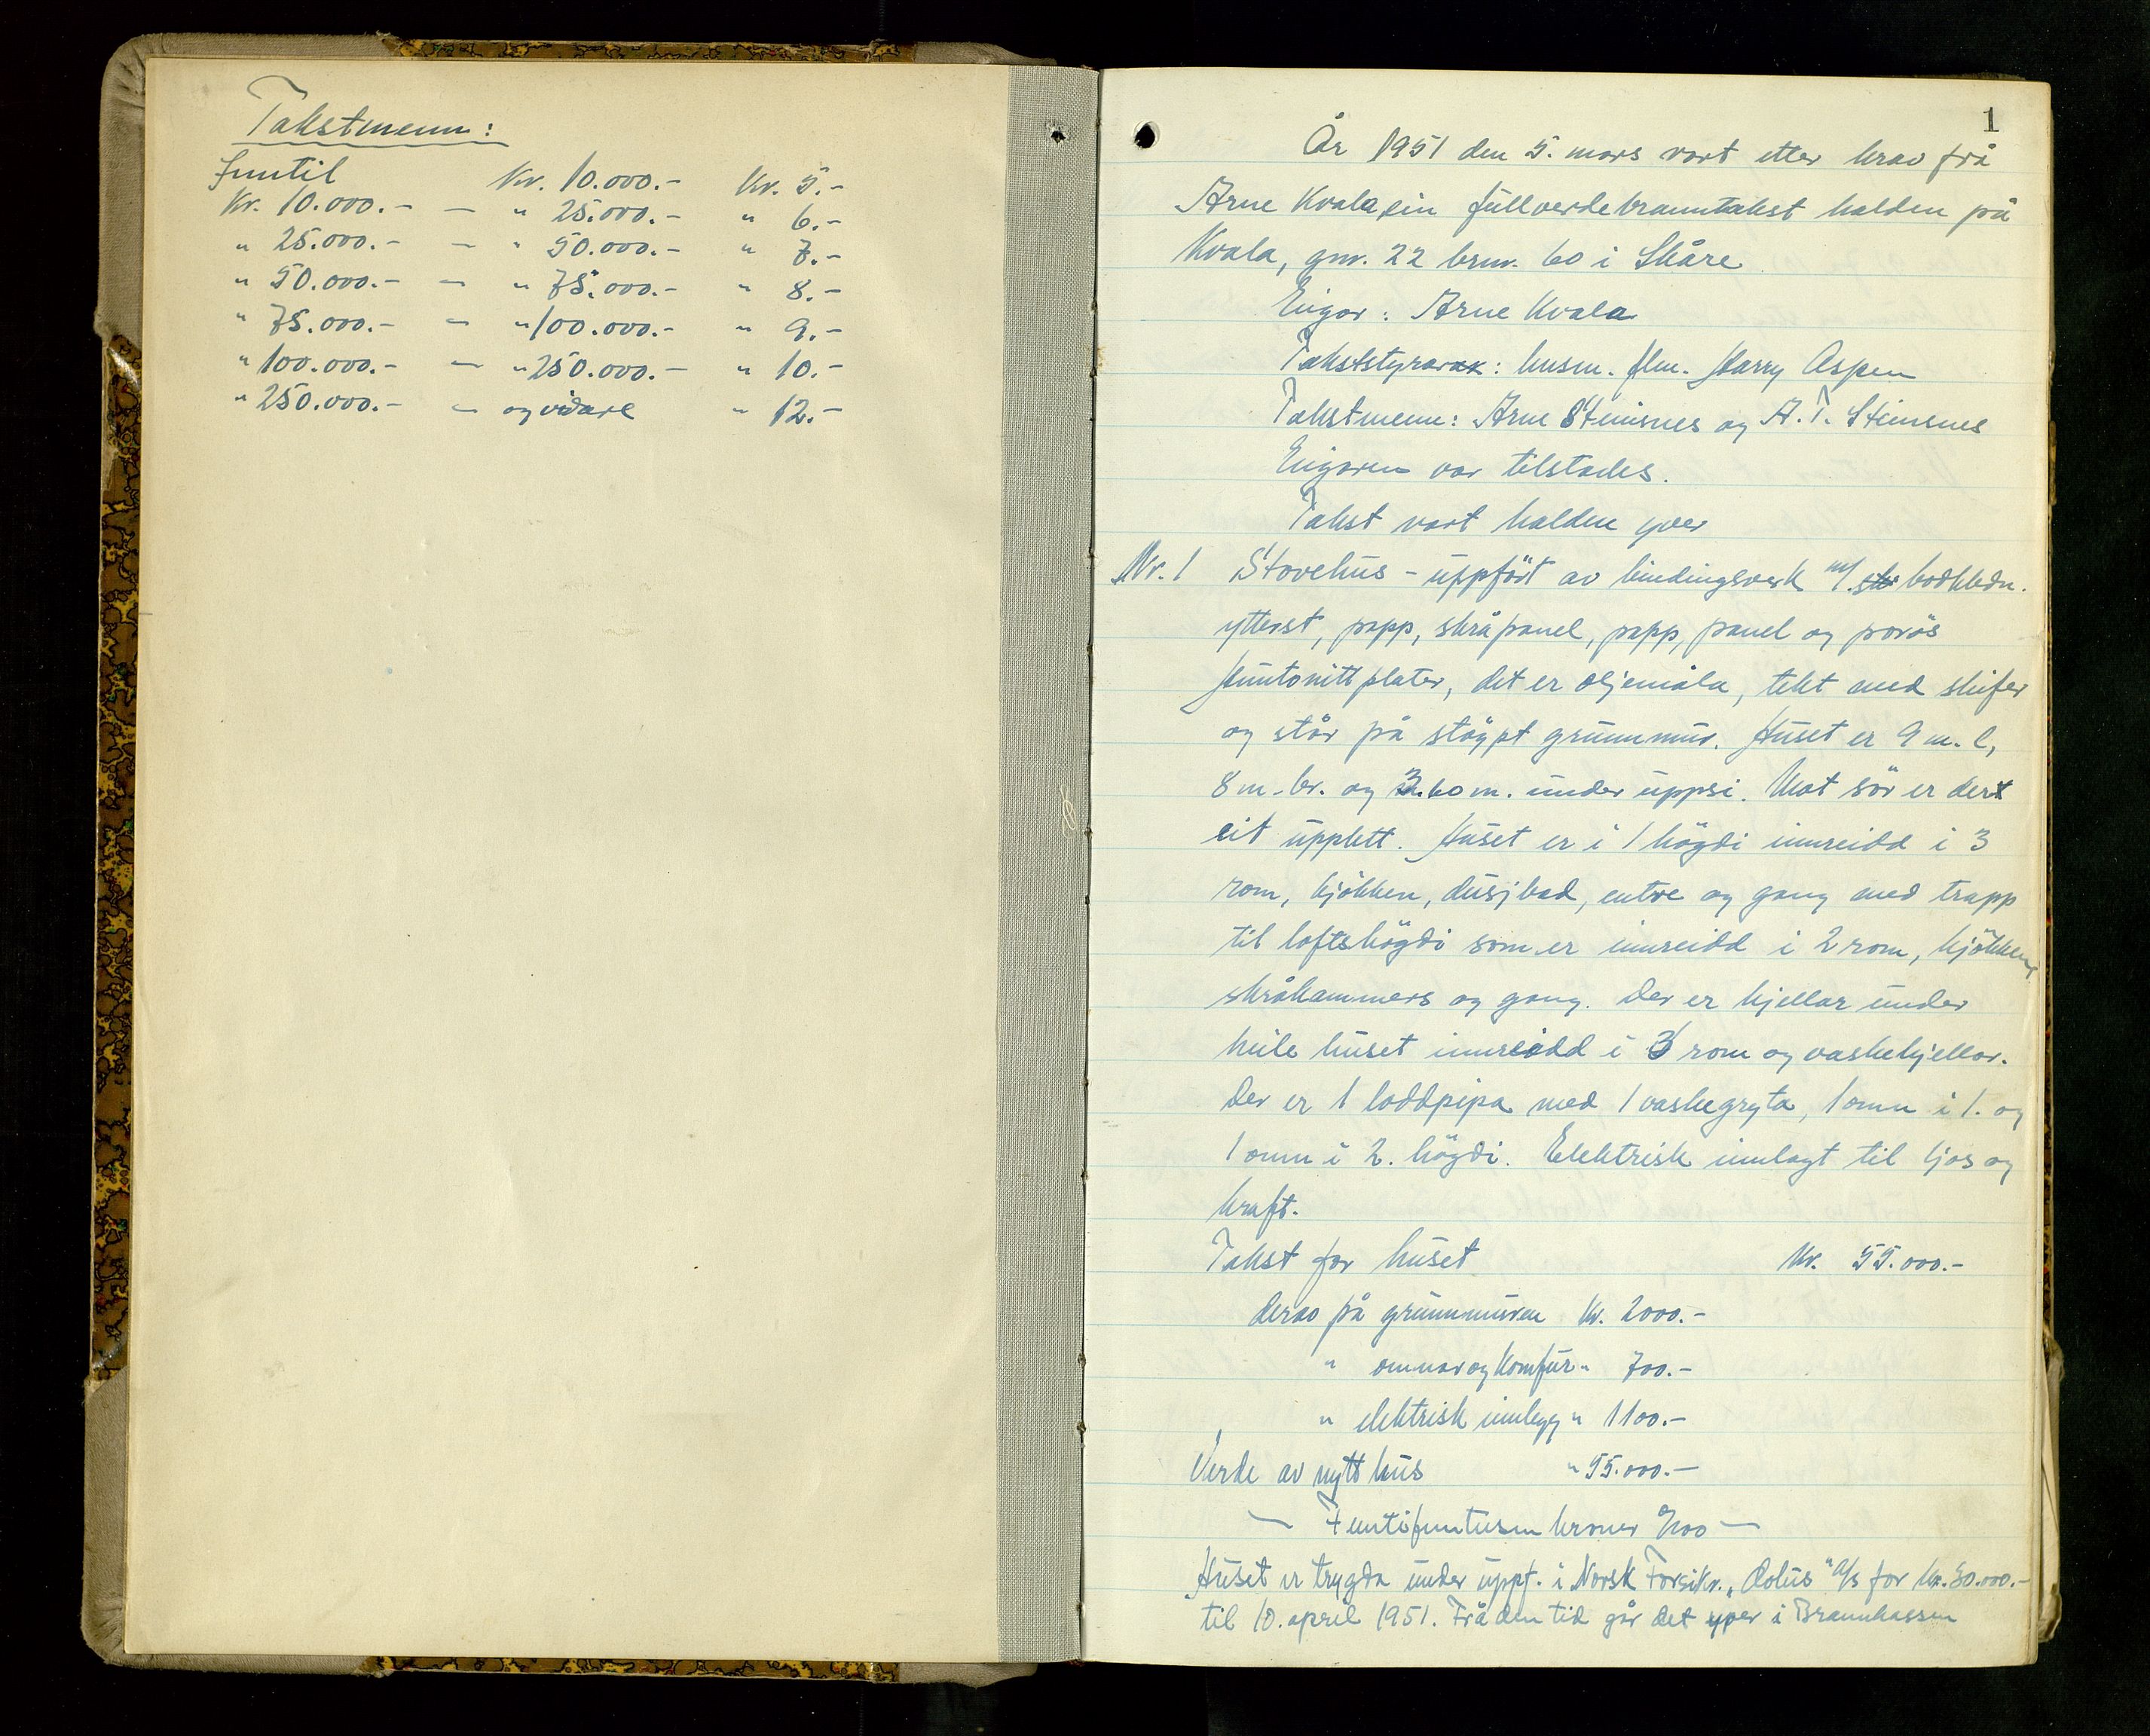 Takstmenn:
Inntil Kr. 10.000.- Kr. 5.-
Kr. 10.000.- — " 25.000.- " 6.-
" 25.000.- — " 50.000.- " 7.-
" 50.000.- — " 75.000.- " 8.-
" 75.000.- — " 100.000.- " 9.-
" 100.000.- — " 250.000.- " 10.-
" 250.000.- — og vidare " 12.-
1
År 1951 den 5. mars vart etter krav frå
Arne Kvala, ein fullverdebranntakst halden på
Kvala, gnr. 22 brnr. 60 i Skåre
Eigar: Arne Kvala
Takststyrar: lensm. flm. Harry Aspen
Takstmenn: Arne Steinsnes og A. T. Steinsnes
Eigaren var tilstades.
Takst vart halden yver
Nr. 1 Stovehus - uppfört av bindingsverk m/. bordkledn.
ytterst, papp, skråpanel, papp, panel og porös
Huntonittplater, det er oljemåla, tekt med skifer
og står på stöypt grunnmur. Huset er 9 m. l,
8 m. br. og 3.60 m. under uppsi. Mot sör er der
eit upplett. Huset er i 1 högdi innreidd i 3
rom, kjökken, dusjbad, entre og gang med trapp
til loftshögdi som er innreidd i 2 rom, kjökken,
skråkammers og gang. Der er kjellar under
heile huset innreidd i 3 rom og vaskekjellar.
Der er 1 loddpipa med 1 vaskegryta, 1 omn i 1. og
1 omn i 2. högdi. Elektrisk innlagt til ljos og
kraft.
Takst for huset Kr. 55.000.-
derav på grunnmuren Kr. 2000.-
" omnar og komfur " 700.-
" elektrisk innlegg " 1100.-
Verde av nytt hus " 55.000.-
— Femtifemtusen kroner 0/00 —
Huset er trygda under uppf. i Norsk Forsikr. „Æolus" A/S for kr. 30.000.-
til 10. april 1951. Frå den tid går det yver i Brannkassen